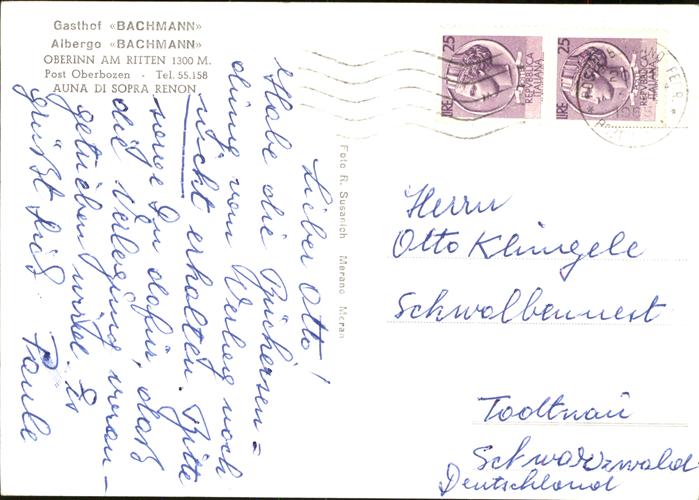 Gasthof «BACHMANN»
Albergo «BACHMANN»
OBERINN AM RITTEN 1300 M.
Post Oberbozen - Tel. 55.158
AUNA DI SOPRA RENON
Lieber Otto!
Habe die Büchersen=
dung vom Verlag noch
nicht erhalten. Bitte
sorge Du dafür, daß
die Verlegung voran-
getrieben wird. Es
grüßt Dich
Paule
Foto R. Susanich Merano Meran
25
LIRE
REPVBBLICA
ITALIANA
25
LIRE
REPVBBLICA
ITALIANA
Herrn
Otto Klingele
Schwalbennest
Todtnau
Schwarzwald
Deutschland